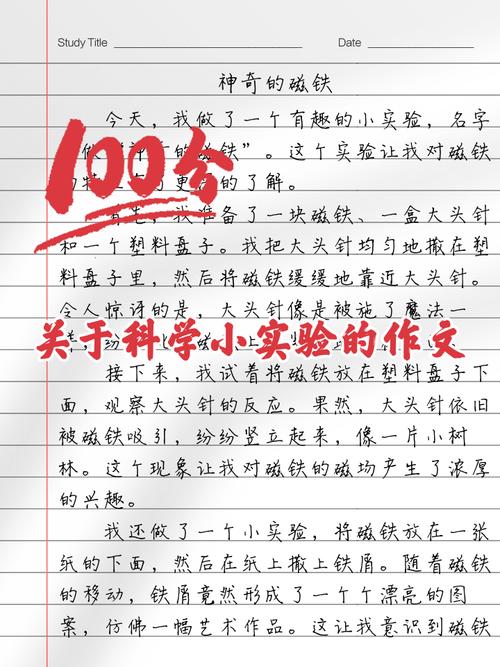 Study Title
Date
神奇的磁铁
今天，我做了一个有趣的小实验，名字
的磁铁”。这个实验让我对磁铁
的了解。
100分
我准备了一块磁铁、一盒大头针
和一个塑料盘子。我把大头针均匀地撒在塑
料盘子里，然后将磁铁缓缓地靠近大头针。
令人惊讶的是，大头针像是被施了魔法一
关于科学小实验的作文
接下来，我试着将磁铁放在塑料盘子下
面，观察大头针的反应。果然，大头针依旧
被磁铁吸引，纷纷竖立起来，像一片小树
林。这个现象让我对磁铁的磁场产生了浓厚
的兴趣。
我还做了一个小实验，将磁铁放在一张
纸的下面，然后在纸上撒上铁屑。随着磁铁
的移动，铁屑竟然形成了一个个漂亮的图
案，仿佛一幅艺术作品。这让我意识到磁铁